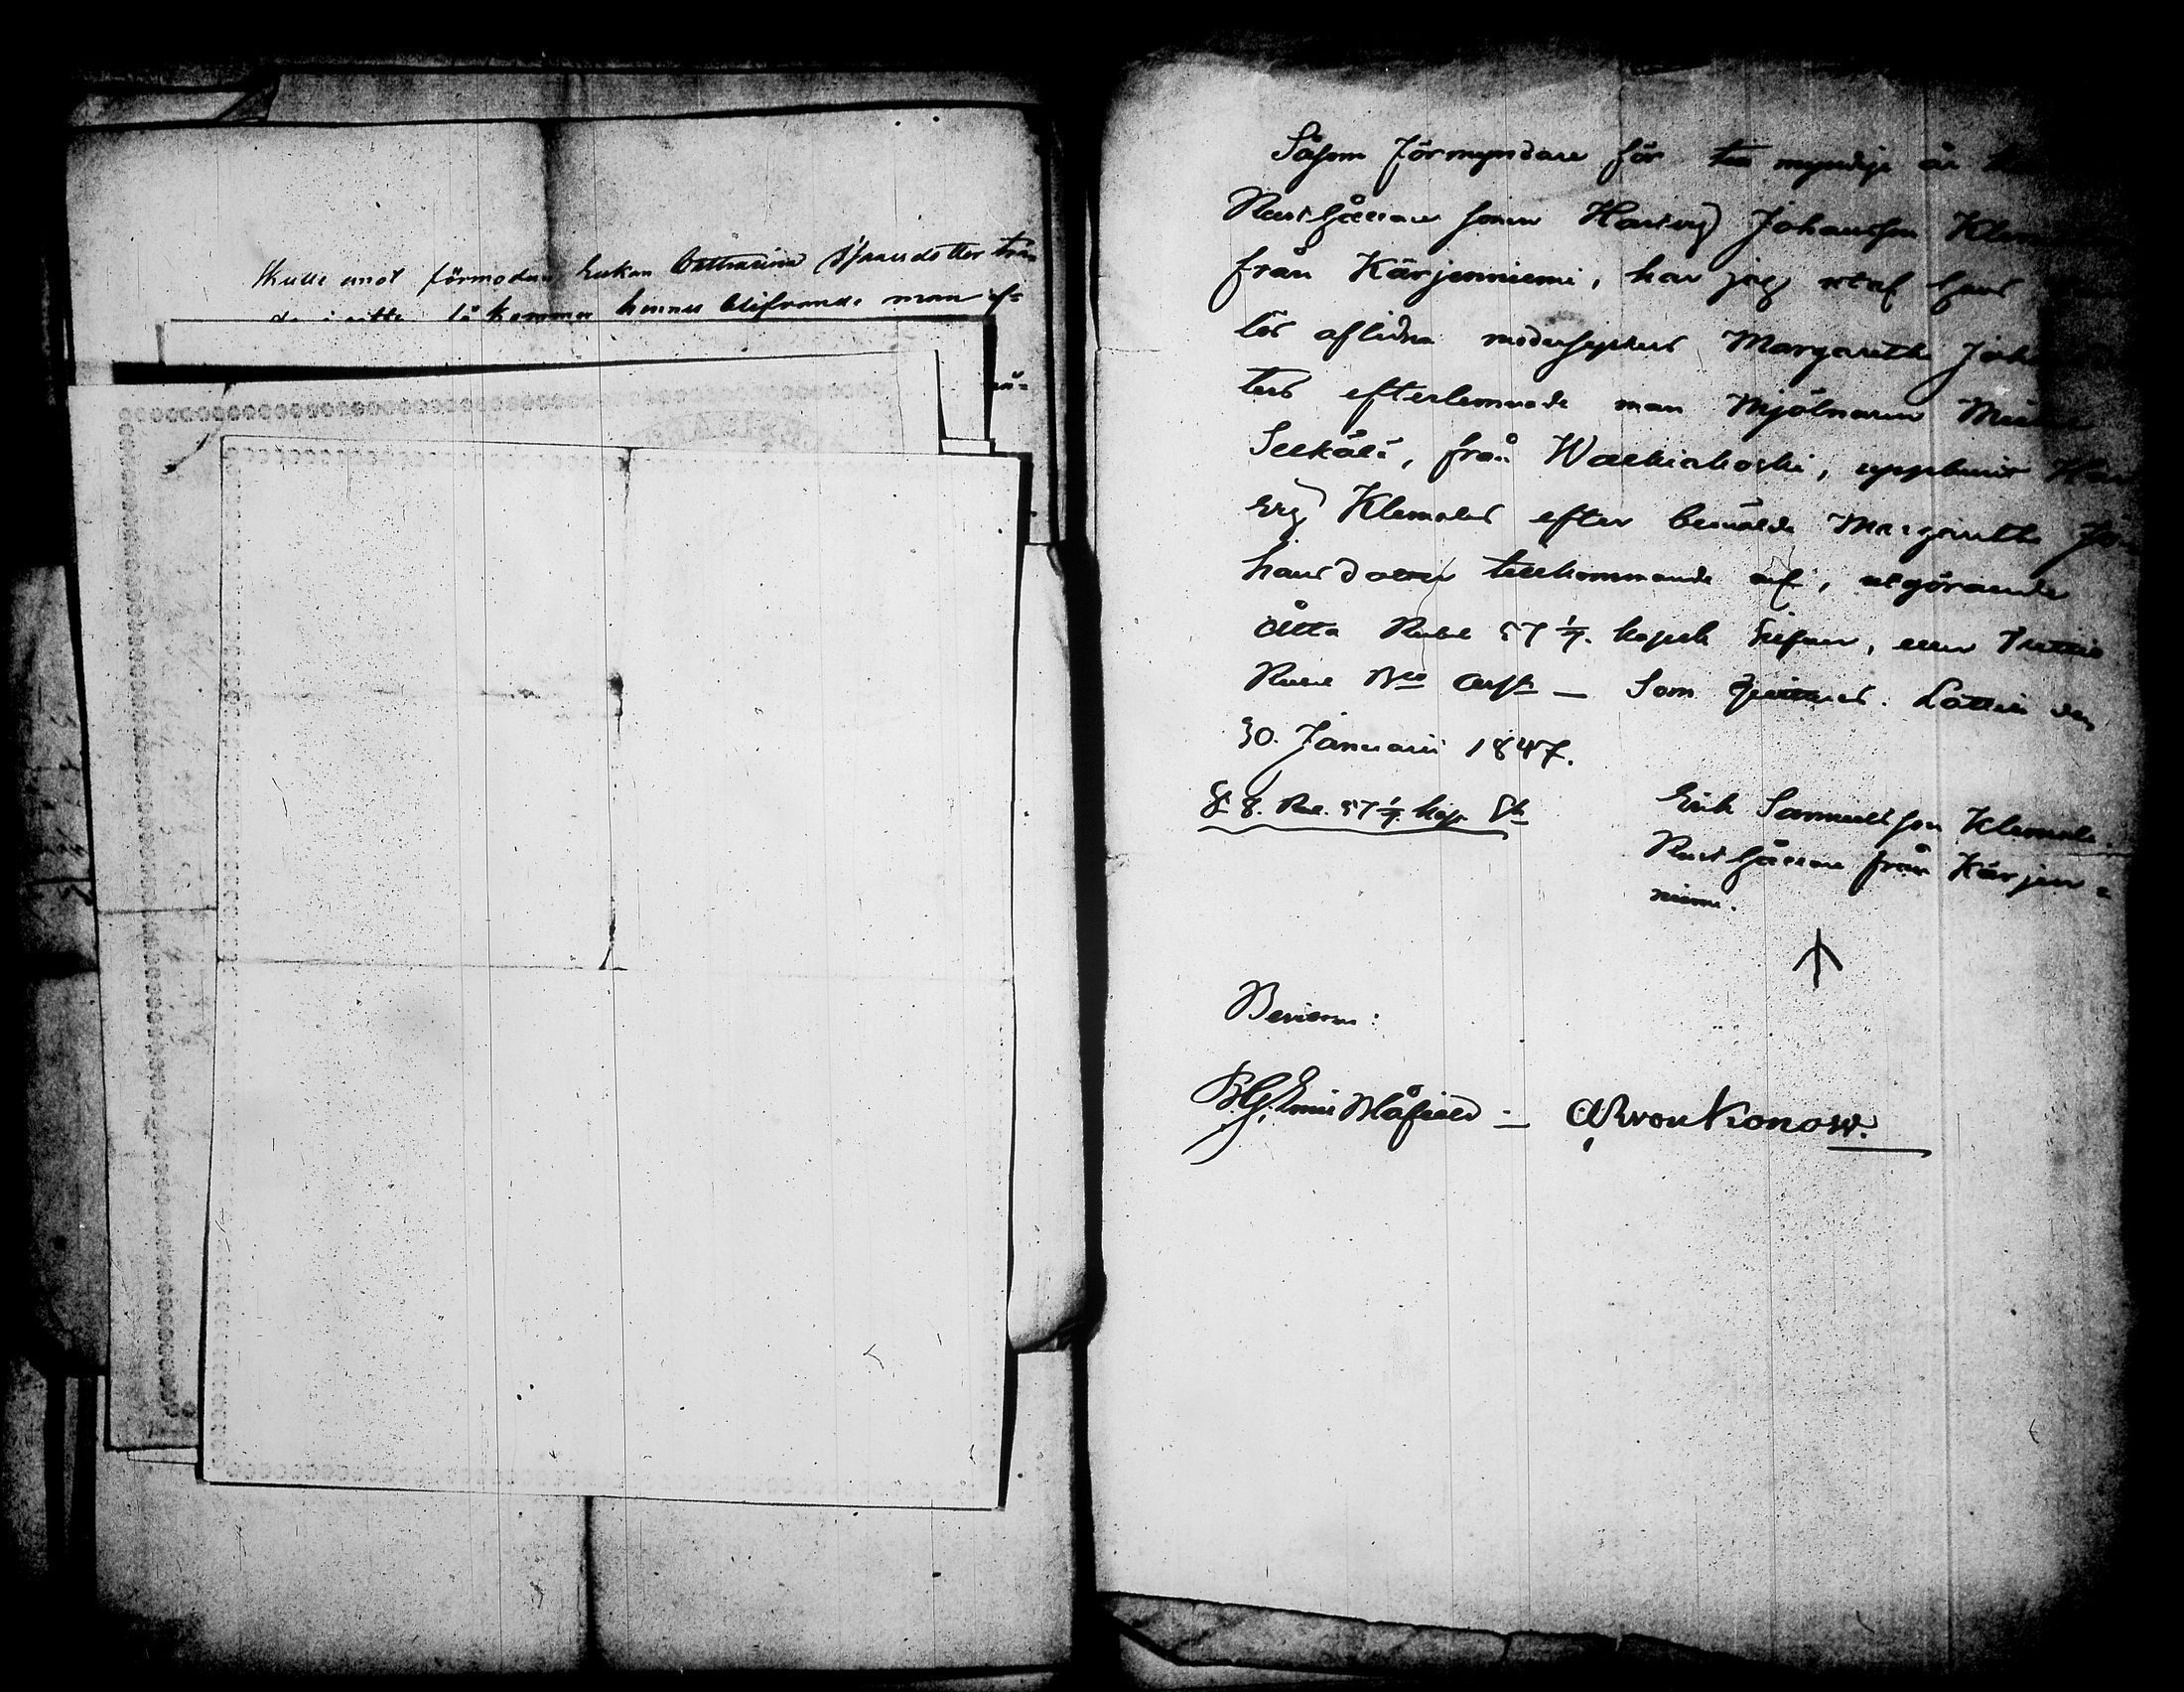 Skulle emot förmodan Enkan Catharina Isaacsdotter trä-
då kommer hennes blifvande man ef-
Såsom Förmyndare för till myndige år
Rusthållare sonen Hartvig Johansson Klemola
från Kärjenniemi, har jag utaf hans
aflidna modersysters Margaretha Joha
ters efterlemnade man Mjölnaren
Seekälä, från Walkiakoski, uppburit Har
vig Klemolas efter berörde Margaretha Jo-
hansdotter tillkommande arf, utgörande
Åtta Rubel 57 1/7. kopek Silfver, eller Trettio
Rubel Bco Assr — Som quitteras. Lattila den
30. Januarii 1847.
8. Rub. 57 1/7. kop. Sr
Erik Samuelsson Klemola.
Rusthållare från Kärjen-
niemi.
Bevittna:
Emil Blåfield — von Konow.